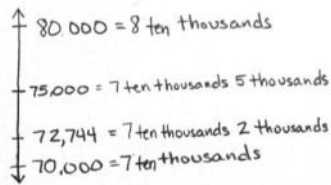 80.000 = 8 ten thousands
75,000 = 7 ten thousands 5 thousands
72,744 = 7 ten thousands 2 thousands
70,000 = 7 ten thousands